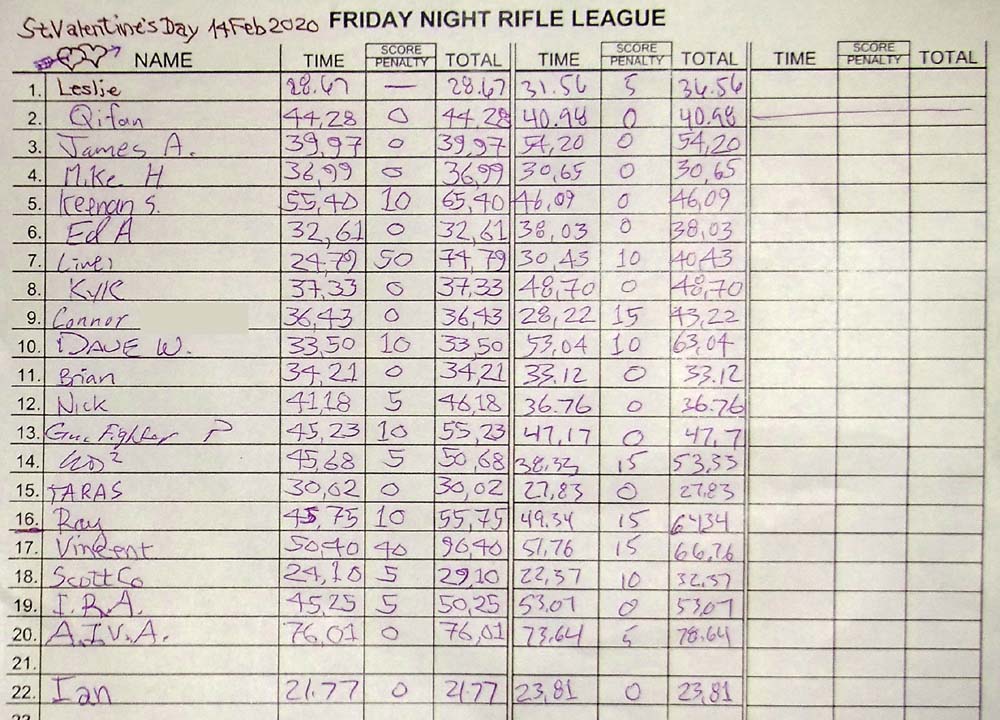 St. Valentine's Day 14 Feb 2020 FRIDAY NIGHT RIFLE LEAGUE
NAME TIME SCORE PENALTY TOTAL TIME SCORE PENALTY TOTAL TIME SCORE PENALTY TOTAL
1. Leslie 28.67 — 28.67 31.56 5 36.56
2. Qifan 44,28 0 44,28 40.98 0 40.98
3. James A. 39,97 0 39,97 54,20 0 54,20
4. Mike H 36,99 0 36,99 30,65 0 30,65
5. Keenan S. 55,40 10 65,40 46,09 0 46,09
6. Ed A 32,61 0 32,61 38,03 0 38,03
7. 24,79 50 74,79 30,43 10 40,43
8. Kyle 37,33 0 37,33 48,70 0 48,70
9. Connor 36,43 0 36,43 28,22 15 43,22
10. DAVE W. 33,50 10 33,50 53,04 10 63,04
11. Brian 34,21 0 34,21 33.12 0 33.12
12. Nick 41,18 5 46,18 36.76 0 36.76
13. Gun Fighter P 45,23 10 55,23 47,17 0 47,7
14. 45,68 5 50,68 38,33 15 53,33
15. TARAS 30,02 0 30,02 27,83 0 27,83
16. Ray 45,75 10 55,75 49,34 15 6434
17. Vincent 50,40 40 90,40 51,76 15 66,76
18. Scott Co 24,10 5 29,10 22,37 10 32,37
19. I.R.A. 45,25 5 50,25 53,07 0 53,07
20. A.I.V.A. 76,01 0 76,01 73,64 5 78,64
21.
22. Ian 21.77 0 21.77 23,81 0 23,81